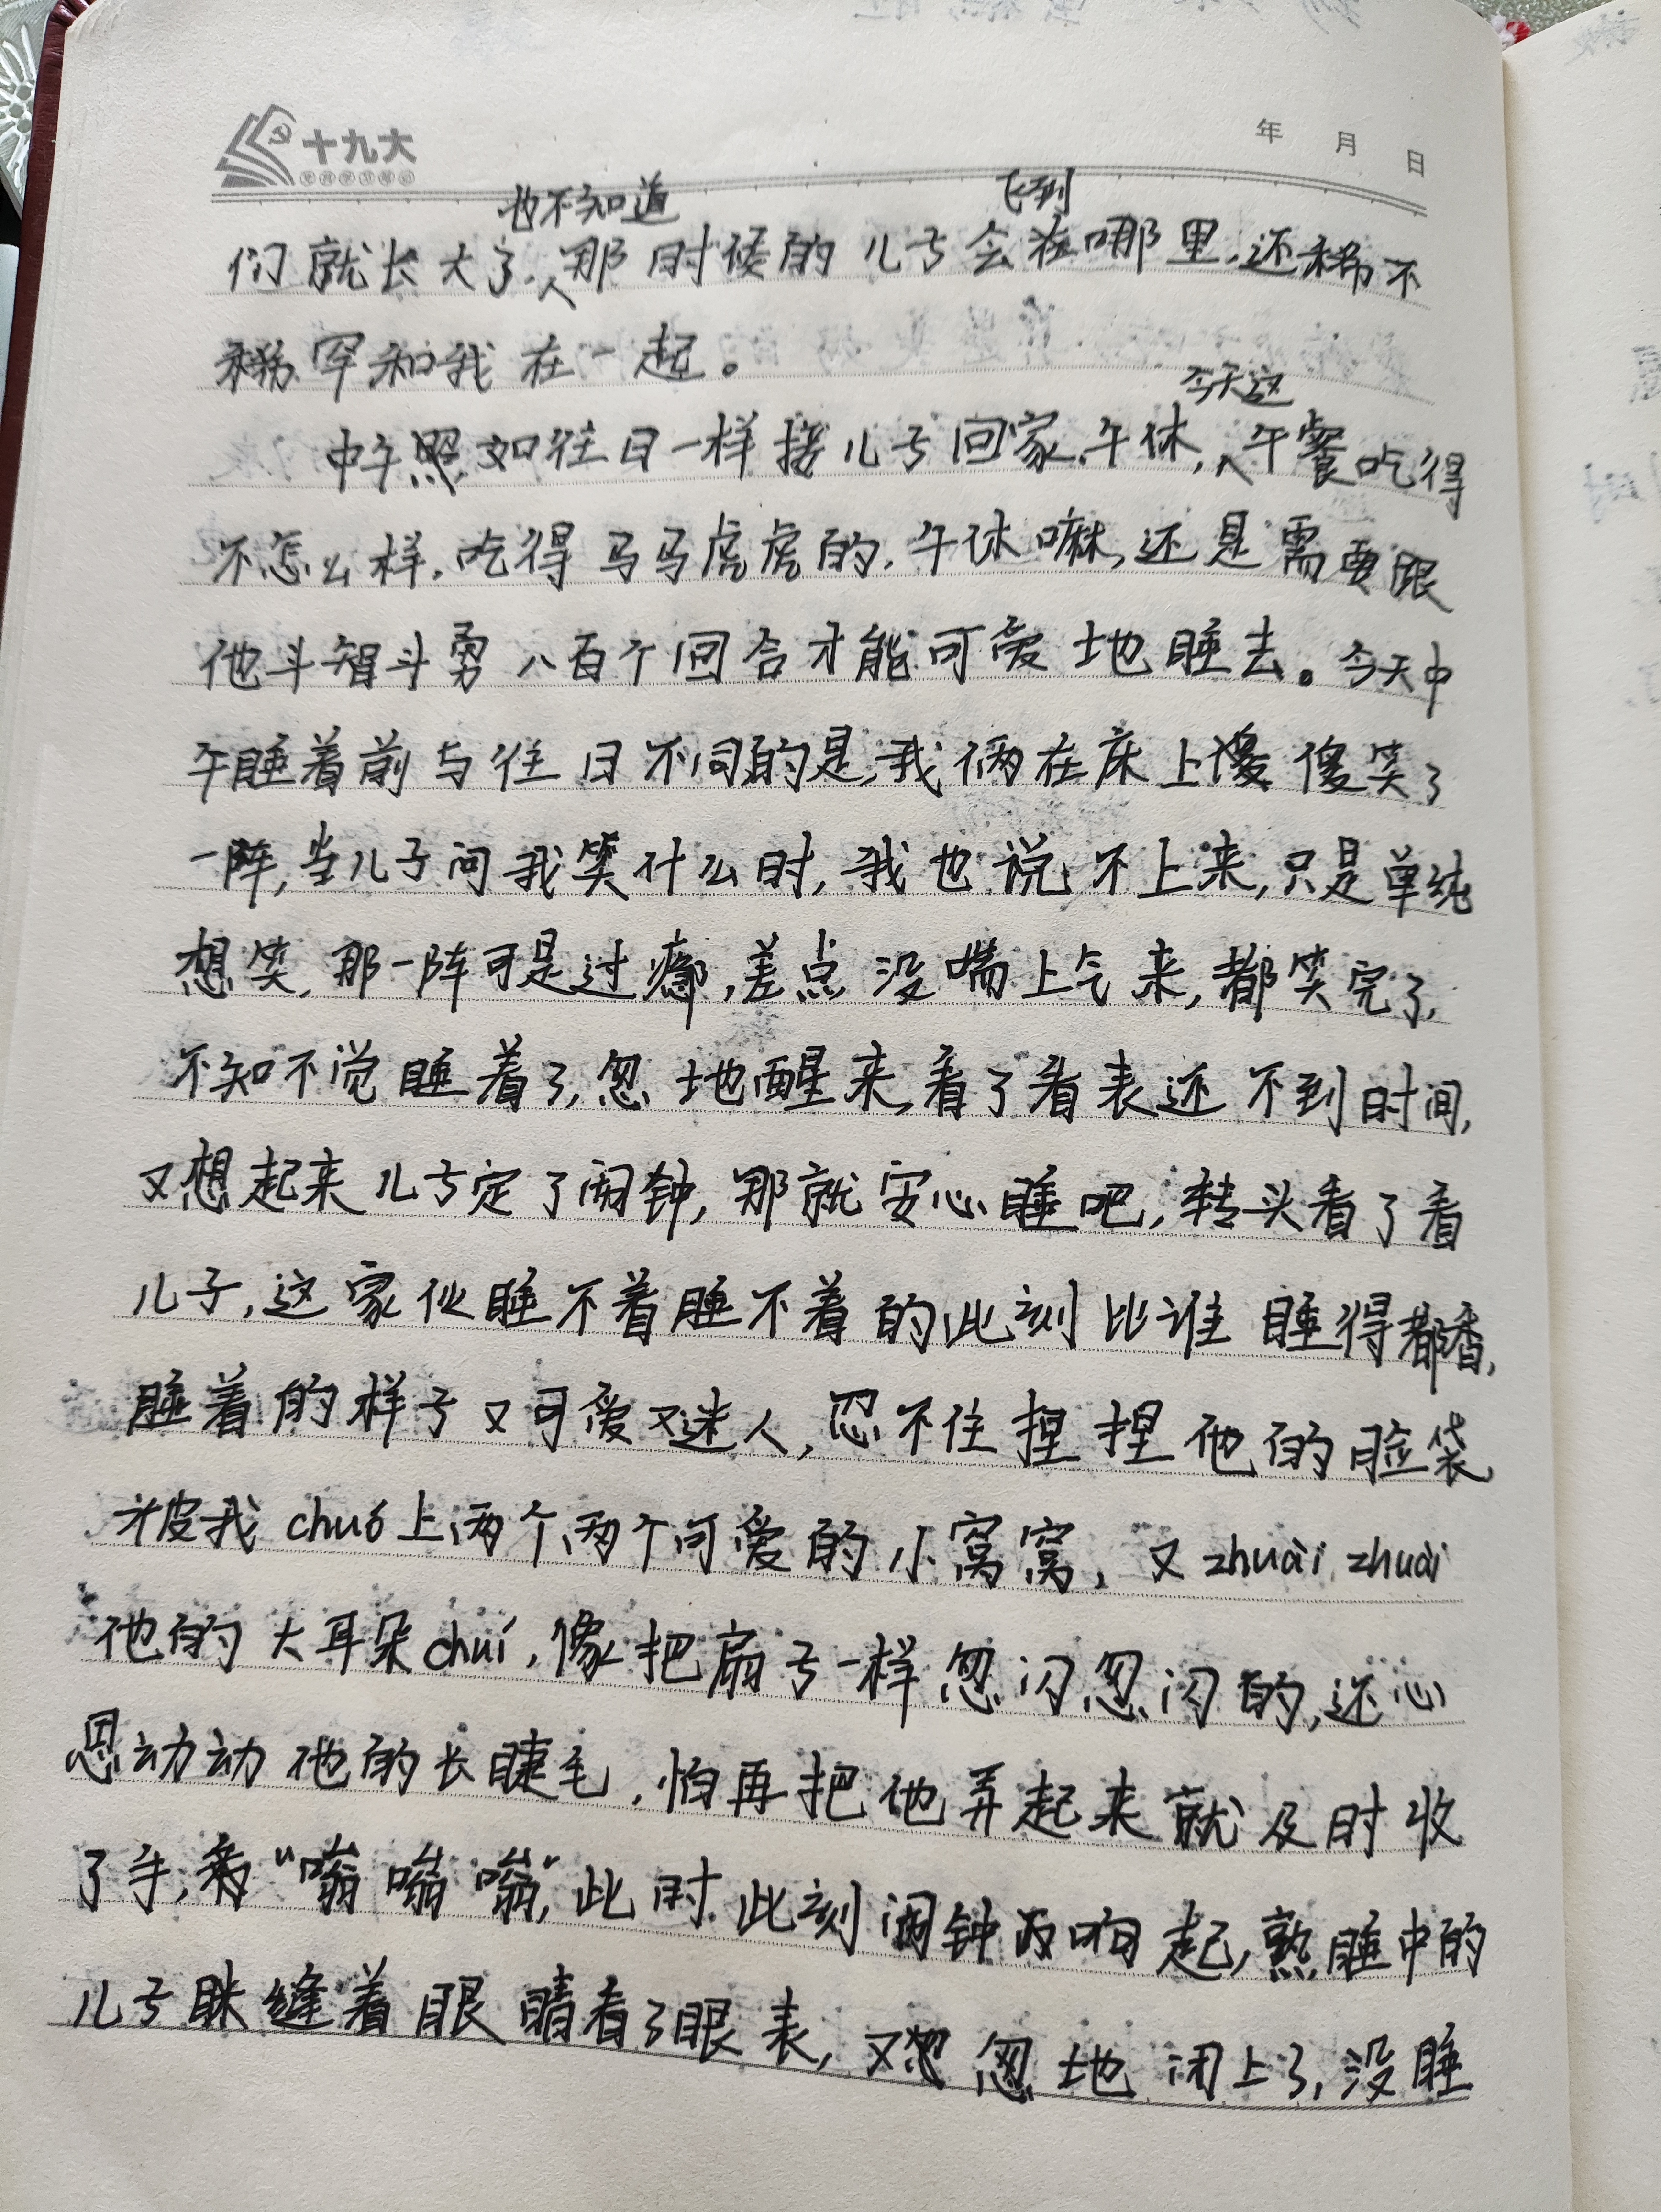 十九大
年 月 日
也不知道 飞到
们就长大了,那时候的儿子会在哪里,还稀不
稀罕和我在一起。
今天这
中午照如往日一样接儿子回家,午休,午餐吃得
不怎么样,吃得马马虎虎的,午休嘛,还是需要跟
他斗智斗勇八百个回合才能可爱地睡去。今天中
午睡着前与往日不同的是,我俩在床上傻傻笑了
一阵,当儿子问我笑什么时,我也说不上来,只是单纯
想笑,那一阵可是过瘾,差点没喘上气来,都笑完了,
不知不觉睡着了,忽地醒来,看了看表还不到时间,
又想起来儿子定了闹钟,那就安心睡吧,转头看了看
儿子,这家伙睡不着睡不着的,此刻比谁睡得都香,
睡着的样子又可爱又迷人,忍不住捏捏他的脸袋
被我chuó上两个两个可爱的小窝窝,又zhuài zhuài
他的大耳朵chuí,像把扇子一样忽闪忽闪的,还心
思动动他的长睫毛,怕再把他弄起来就及时收
了手,“嗡嗡嗡”,此时此刻闹钟响起,熟睡中的
儿子眯缝着眼睛看了眼表,又忽地闭上了,没睡